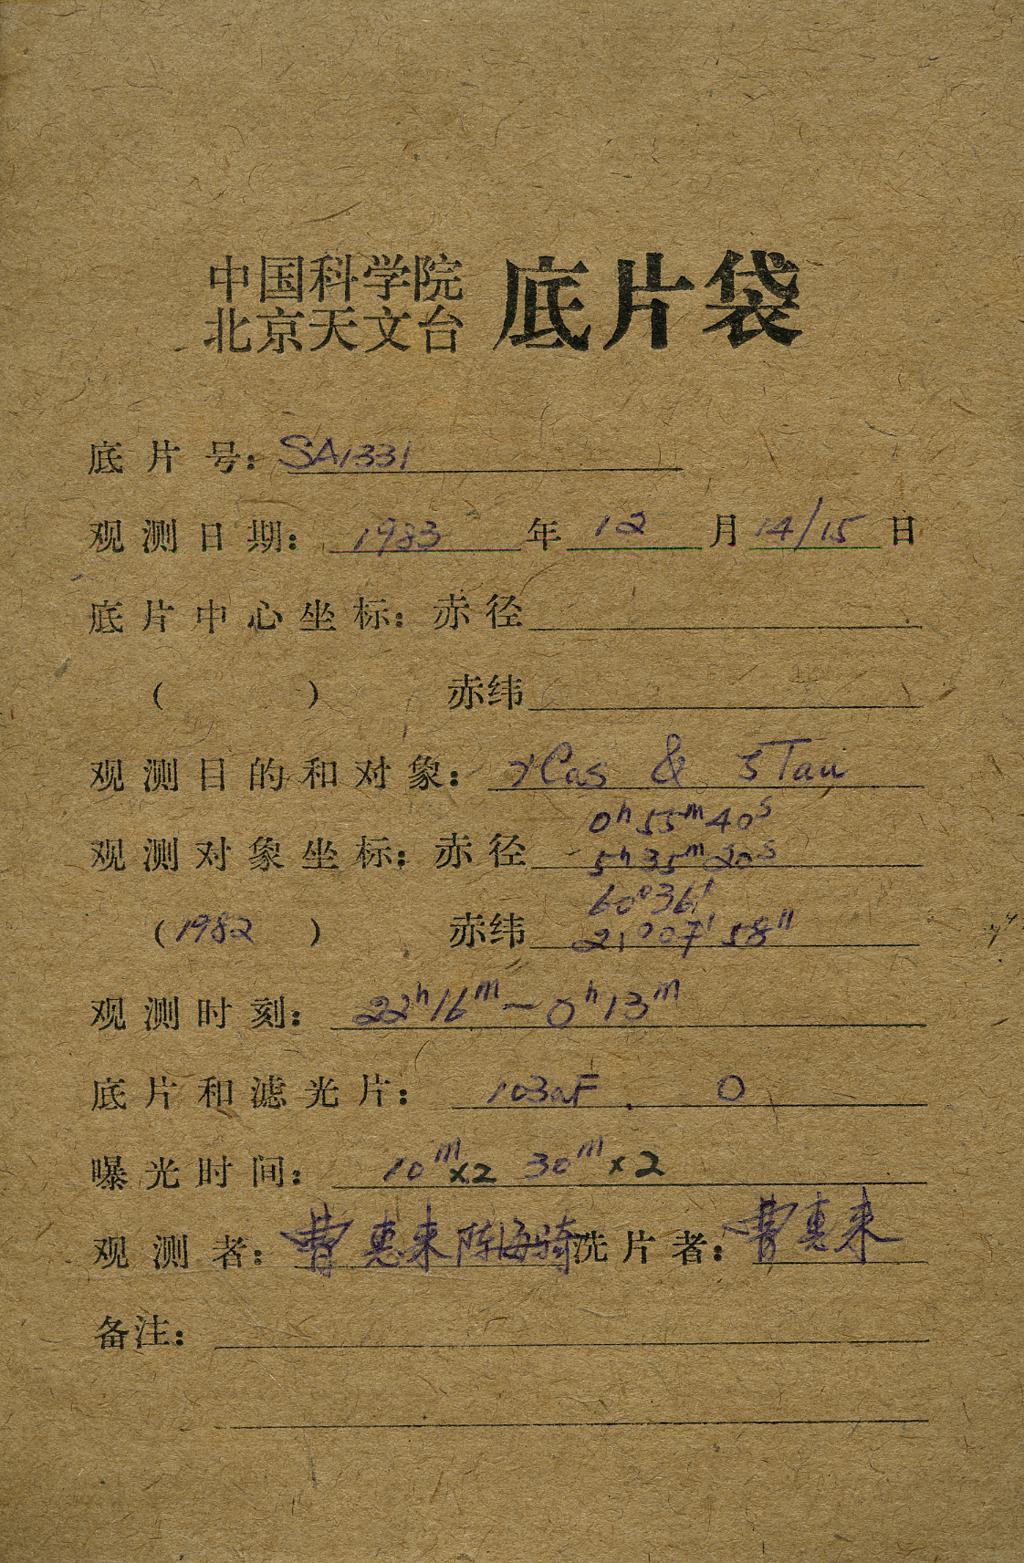 中国科学院
北京天文台 底片袋
底片号: SA1331
观测日期: 1983年12月14/15日
底片中心坐标: 赤径
( ) 赤纬
观测目的和对象: γCas & ζTau
0h55m40s
观测对象坐标: 赤径 5h35m20s
60°36′
(1982) 赤纬 21°07′58″
观测时刻: 22h16m—0h13m
底片和滤光片: 103aF. O
曝光时间: 10m×2 30m×2
观测者: 曹惠来 陈海骑 洗片者: 曹惠来
备注: